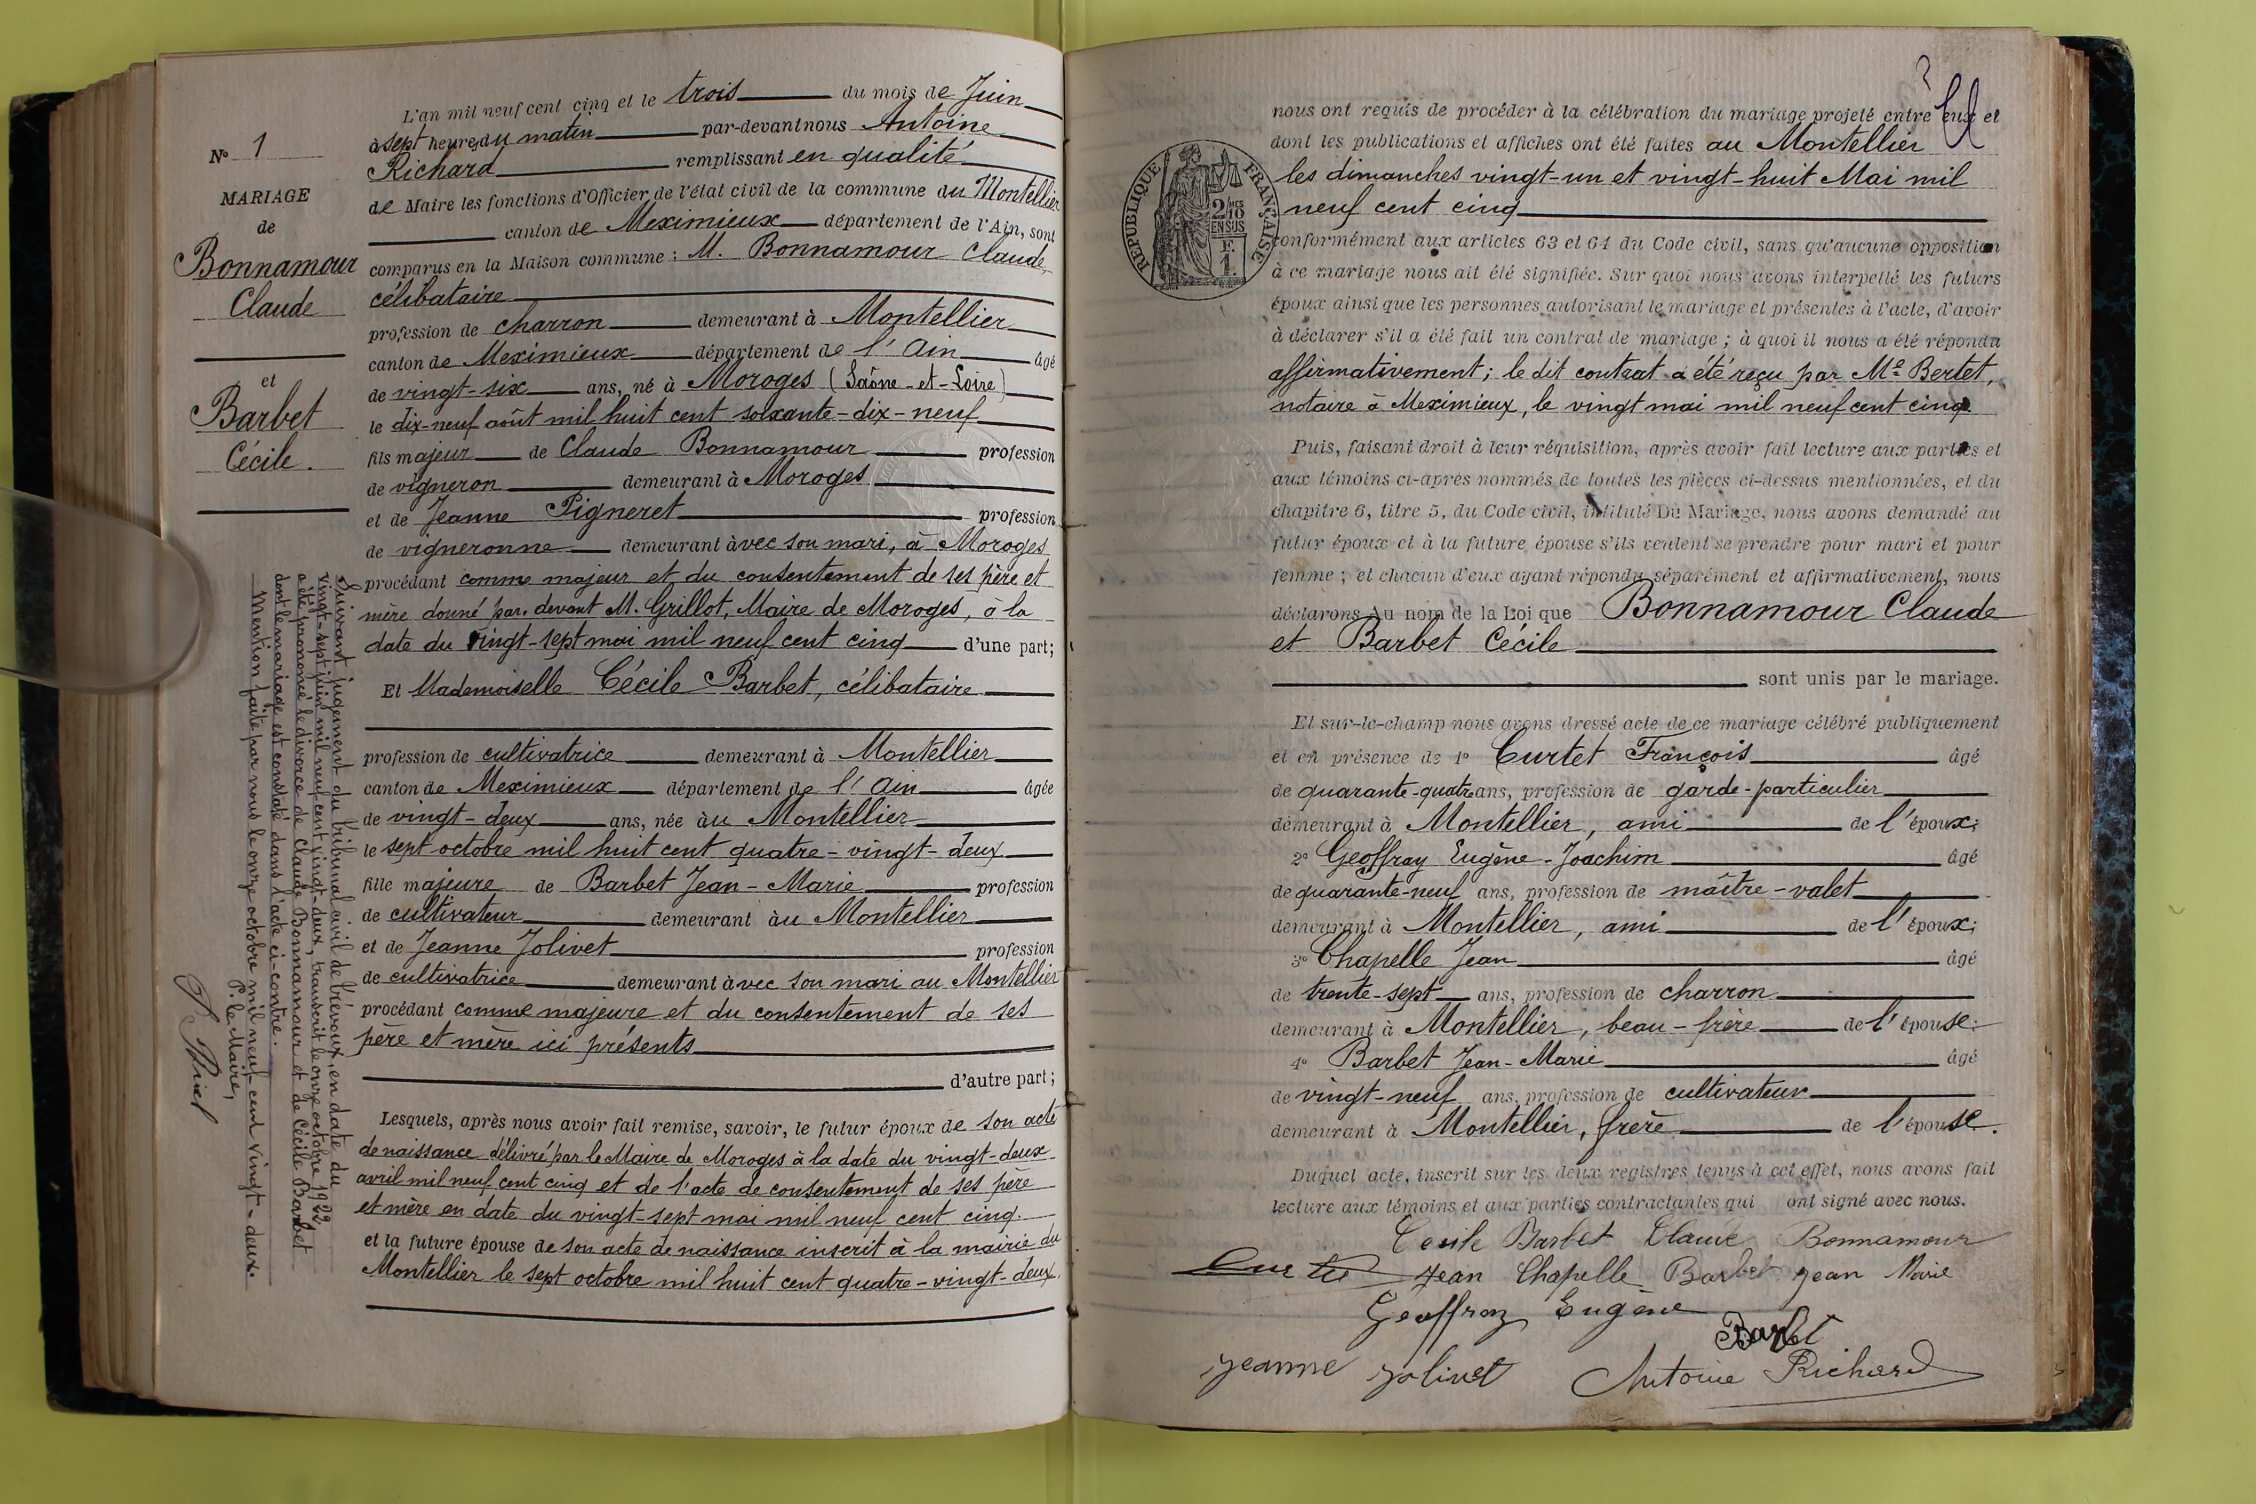 N° 1
MARIAGE
de
Bonnamour
Claude
et
Barbet
Cécile.
L'an mil neuf cent cinq et le trois du mois de Juin
à sept heures du matin par-devant nous Antoine
Richard remplissant en qualité
de Maire les fonctions d'Officier de l'état civil de la commune du Montellier
canton de Meximieux département de l'Ain, sont
comparus en la Maison commune : M. Bonnamour Claude,
célibataire
profession de charron demeurant à Montellier
canton de Meximieux département de l'Ain âgé
de vingt-six ans, né à Moroges (Saône-et-Loire)
le dix-neuf août mil huit cent soixante-dix-neuf
fils majeur de Claude Bonnamour profession
de vigneron demeurant à Moroges
et de Jeanne Pigneret profession
de vigneronne demeurant avec son mari, à Moroges
procédant comme majeur et du consentement de ses père et
mère donné par-devant M. Grillot, Maire de Moroges, à la
date du vingt-sept mai mil neuf cent cinq d'une part;
Et Mademoiselle Cécile Barbet, célibataire
profession de cultivatrice demeurant à Montellier
canton de Meximieux département de l'Ain âgée
de vingt-deux ans, née au Montellier
le sept octobre mil huit cent quatre-vingt-deux
fille majeure de Barbet Jean-Marie profession
de cultivateur demeurant au Montellier
et de Jeanne Jolivet profession
de cultivatrice demeurant avec son mari au Montellier
procédant comme majeure et du consentement de ses
père et mère ici présents
d'autre part;
Lesquels, après nous avoir fait remise, savoir, le futur époux de son acte
de naissance délivré par le Maire de Moroges à la date du vingt-deux
avril mil neuf cent cinq et de l'acte de consentement de ses père
et mère en date du vingt-sept mai mil neuf cent cinq.
et la future épouse de son acte de naissance inscrit à la mairie du
Montellier le sept octobre mil huit cent quatre-vingt-deux.
Suivant jugement du tribunal civil de Trévoux, en date du
vingt-sept juin mil neuf cent vingt-deux, transcrit le onze octobre 1922
a été prononcé le divorce de Claude Bonnamour et de Cécile Barbet
dont le mariage est constaté dans l'acte ci-contre.
Mention faite par nous le onze octobre mil neuf cent vingt-deux.
P. le Maire,
nous ont requis de procéder à la célébration du mariage projeté entre eux et
dont les publications et affiches ont été faites au Montellier
les dimanches vingt-un et vingt-huit Mai mil
neuf cent cinq
conformément aux articles 63 et 64 du Code civil, sans qu'aucune opposition
à ce mariage nous ait été signifiée. Sur quoi nous avons interpellé les futurs
époux ainsi que les personnes autorisant le mariage et présentes à l'acte, d'avoir
à déclarer s'il a été fait un contrat de mariage ; à quoi il nous a été répondu
affirmativement; le dit contrat a été reçu par Me Bertet,
notaire à Meximieux, le vingt mai mil neuf cent cinq.
Puis, faisant droit à leur réquisition, après avoir fait lecture aux parties et
aux témoins ci-après nommés de toutes les pièces ci-dessus mentionnées, et du
chapitre 6, titre 5, du Code civil, intitulé Du Mariage, nous avons demandé au
futur époux et à la future épouse s'ils veulent se prendre pour mari et pour
femme ; et chacun d'eux ayant répondu séparément et affirmativement, nous
déclarons Au nom de la Loi que Bonnamour Claude
et Barbet Cécile
sont unis par le mariage.
Et sur-le-champ nous avons dressé acte de ce mariage célébré publiquement
et en présence de 1° Curtet François âgé
de quarante-quatre ans, profession de garde-particulier
demeurant à Montellier, ami de l'époux;
2° Geoffray Eugène-Joachim âgé
de quarante-neuf ans, profession de maître-valet
demeurant à Montellier, ami de l'époux;
3° Chapelle Jean âgé
de trente-sept ans, profession de charron
demeurant à Montellier, beau-frère de l'épouse;
4° Barbet Jean-Marie âgé
de vingt-neuf ans, profession de cultivateur
demeurant à Montellier, frère de l'épouse.
Duquel acte, inscrit sur les deux registres tenus à cet effet, nous avons fait
lecture aux témoins et aux parties contractantes qui ont signé avec nous.
Cecile Barbet Claude Bonnamour
Curtet Jean Chapelle Barbet Jean Marie
Geoffray Eugène
Barbet
Jeanne Jolivet Antoine Richard
RÉPUBLIQUE FRANÇAISE
2/10
EN SUS
F.
1.